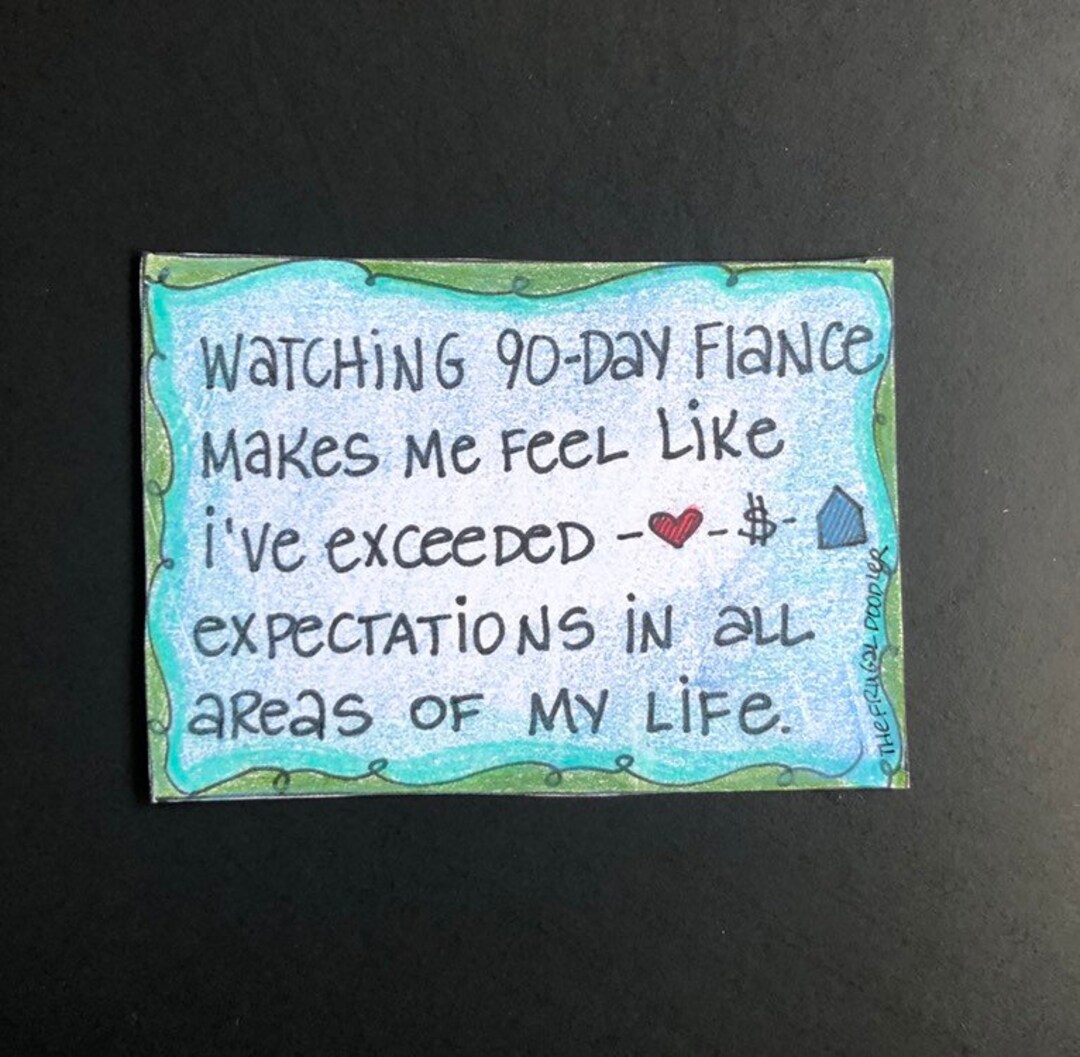 WaTCHiNG 90-Day FiaNce
Makes Me FeeL Like
i've exceeDeD -❤-$-
expecTATiONS iN aLL
aReas OF MY LiFe.
©THeFRUGaLDOODLeR